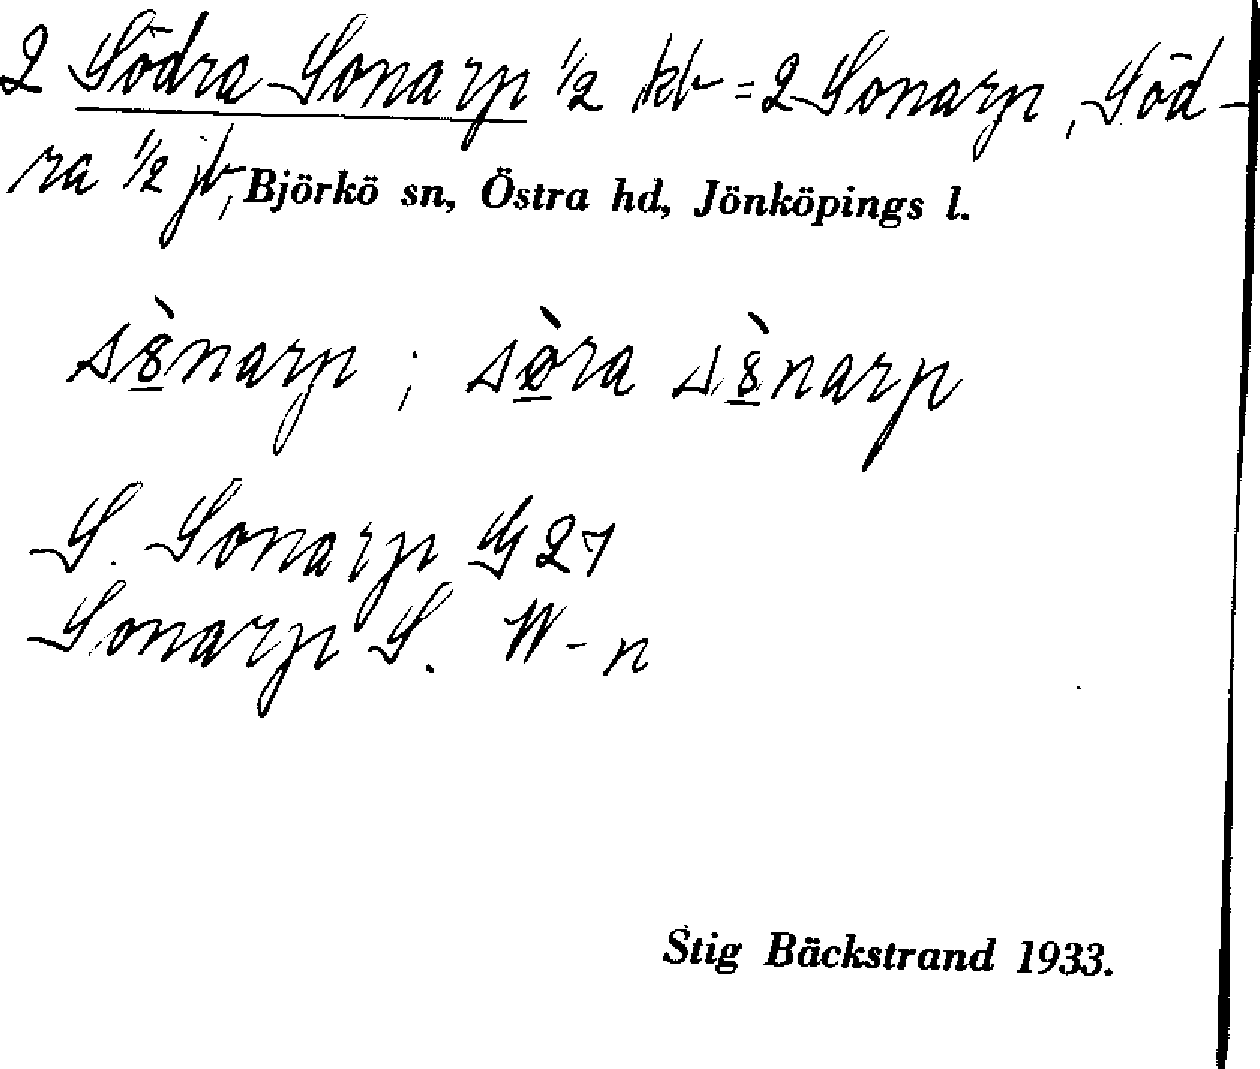 2 Södra Sonarp 1/2 kb = 2 Sonarp, Söd-
ra 1/2 jb, Björkö sn, Östra hd, Jönköpings l.
s8̲̀narp ; sø̲̀ra s8̲̀narp
S. Sonarp G 27
Sonarp S. W-n
Stig Bäckstrand 1933.